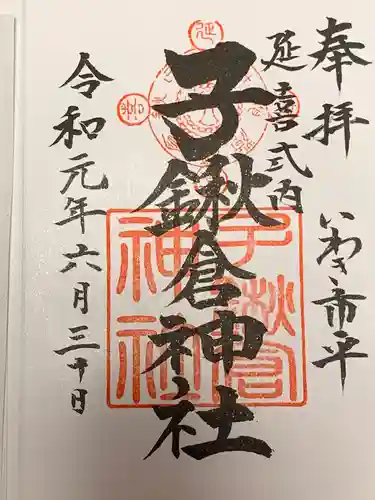 奉拝 いわき市平
延喜式内
子鍬倉神社
令和元年六月三十日
子鍬倉神社